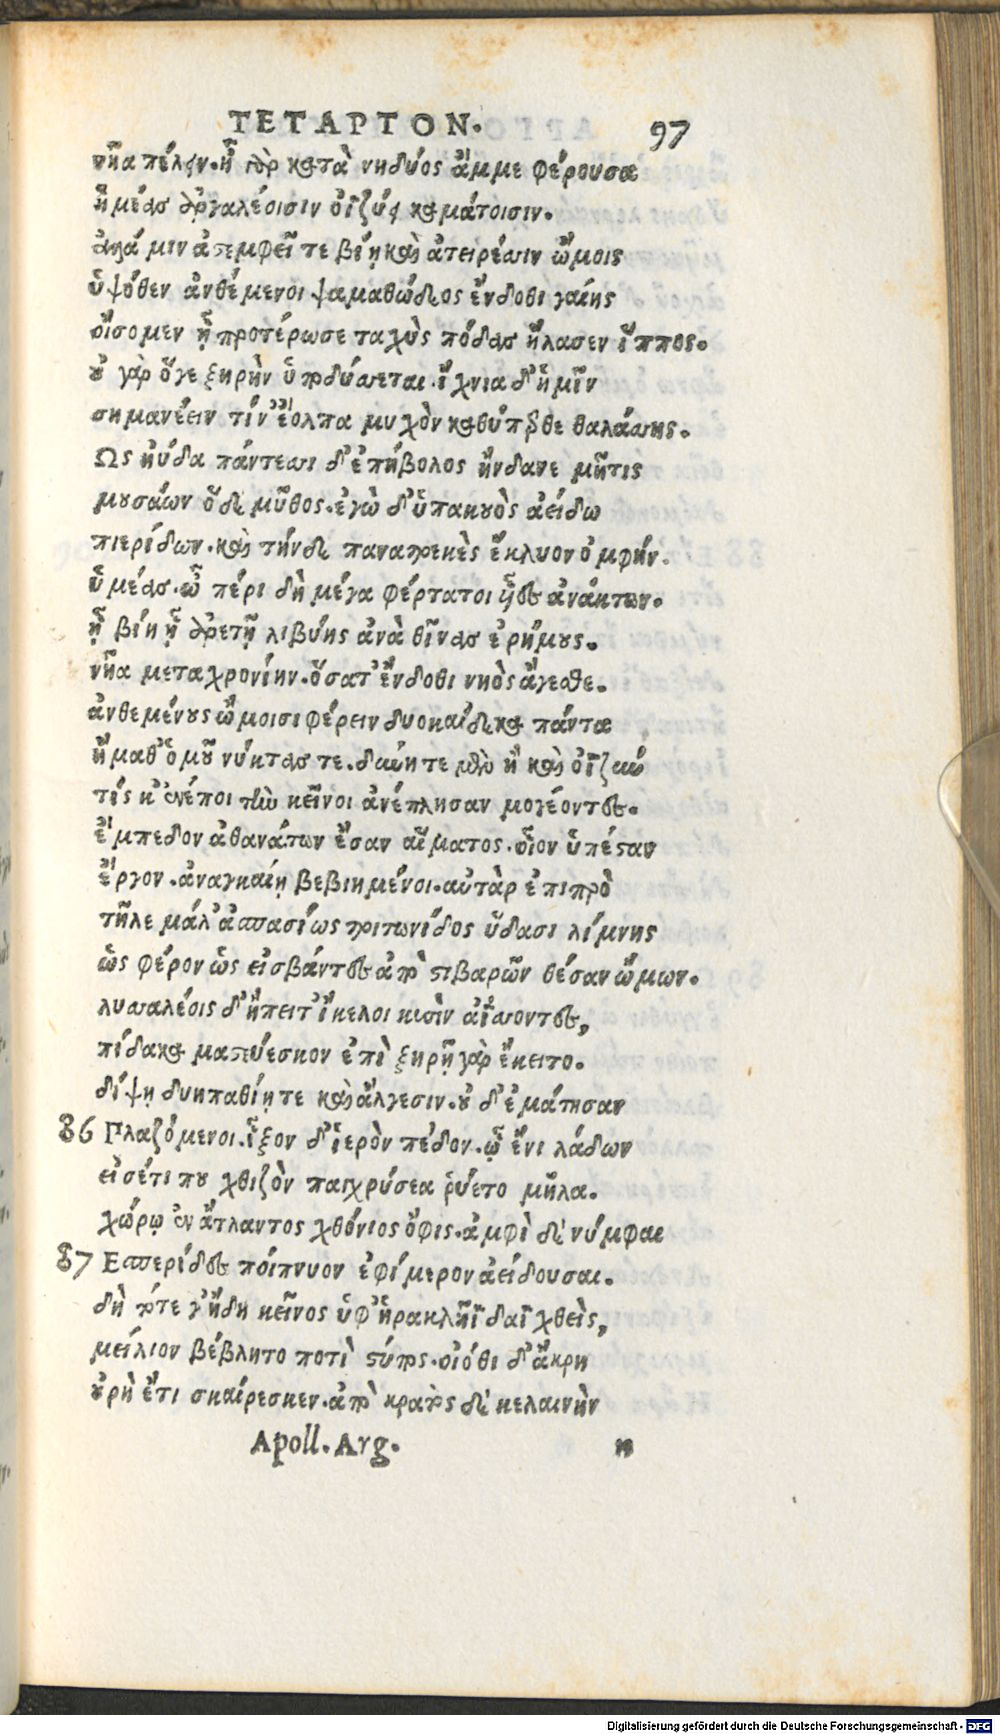 ΤΕΤΑΡΤΟΝ. 97
νῆα πέλειν. ἦ γὰρ κατὰ νηδύος ἄμμε φέρουσα
ἡμέας ἀργαλέοισιν ὀϊζύει καμάτοισιν.
ἀλλά μιν ἀστεμφεῖ τε βίῃ καὶ ἀτειρέσιν ὤμοις
ὑψόθεν ἀνθέμενοι ψαμαθώδεος ἔνδοθι γαίης
οἴσομεν ᾗ προτέρωσε ταχὺς πόδας ἤλασεν ἵππος.
οὐ γὰρ ὅγε ξηρὴν ὑποδύσεται. ἴχνια δ' ἡμῖν
σημανέειν τίν' ἔολπα μυχὸν καθύπερθε θαλάσσης.
Ως ηύδα πάντεσσι δ' ἐπήβολος ἥνδανε μῆτις
μουσάων ὅδε μῦθος. ἐγὼ δ' ὑπακουὸς ἀείδω
πιερίδων. καὶ τήνδε πανατρεκὲς ἔκλυον ὀμφήν.
ὑμέας. ὦ πέρι δὴ μέγα φέρτατοι ἦες ἀνάκτων.
ᾗ βίῃ ᾗ ἀρετῇ λιβύης ἀνὰ θῖνας ἐρήμους.
νῆα μεταχρονίην. ὅσα τ' ἔνδοθι νηὸς ἄγεσθε.
ἀνθεμένους ὤμοισι φέρειν δυοκαίδεκα πάντα
ἤμαθ' ὁμοῦ νύκτας τε. δύην τε μὲν ἢ καὶ ὀϊζὺν
τίς κ' ἐνέποι τὴν κεῖνοι ἀνέπλησαν μογέοντες.
ἔμπεδον ἀθανάτων ἔσαν αἵματος. οἷον ὑπέσταν
ἔργον. ἀναγκαίῃ βεβιημένοι. αὐτὰρ ἐπιπρὸ
τῆλε μάλ' ἀσπασίως τριτωνίδος ὕδασι λίμνης
ὣς φέρον ὣς εἰσβάντες ἀπὸ στιβαρῶν θέσαν ὤμων.
λυσσαλέοις δ' ἤπειτ' ἴκελοι κυσὶν ἀΐσσοντες,
πίδακα μαστεύεσκον ἐπὶ ξηρὴ γὰρ ἔκειτο.
δίψῃ δυηπαθίῃ τε καὶ ἄλγεσιν. οὐ δ' ἐμάτησαν
86 Πλαζόμενοι. ἷξον δ' ἱερὸν πέδον. ᾧ ἔνι λάδων
εἰσέτι που χθιζὸν παγχρύσεα ῥύετο μῆλα.
χώρῳ ἐν ἄτλαντος χθόνιος ὄφις. ἀμφὶ δὲ νύμφαι
87 Εσπερίδες ποίπνυον ἐφίμερον ἀείδουσαι.
δὴ τότε γ' ἤδη κεῖνος ὑφ' ἡρακλῆϊ δαϊχθεὶς,
μείλιον βέβλητο ποτὶ στύπος. οἰόθι δ' ἄκρη
οὐρὴ ἔτι σκαίρεσκεν. ἀπὸ κρατὸς δὲ κελαινὴν
Apoll. Arg. n
Digitalisierung gefördert durch die Deutsche Forschungsgemeinschaft - DFG